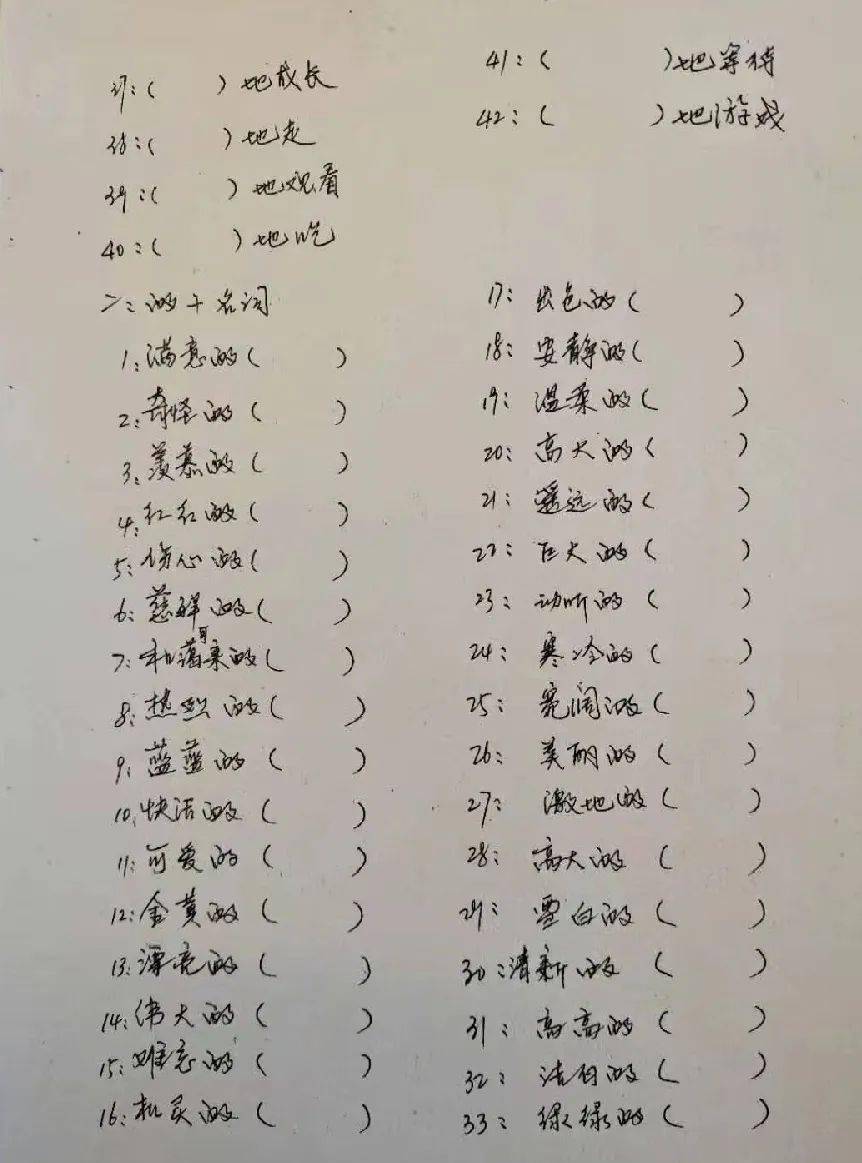 37:( )地成长
38:( )地走
39:( )地观看
40:( )地吃
41:( )地等待
42:( )地游戏
二:的+名词
1:满意的( )
2:奇怪的( )
3:羡慕的( )
4:红红的( )
5:伤心的( )
6:慈祥的( )
7:和蔼可亲的( )
8:热烈的( )
9:蓝蓝的( )
10:快活的( )
11:可爱的( )
12:金黄的( )
13:漂亮的( )
14:伟大的( )
15:难忘的( )
16:机灵的( )
17:出色的( )
18:安静的( )
19:温柔的( )
20:高大的( )
21:遥远的( )
22:巨大的( )
23:动听的( )
24:寒冷的( )
25:宽阔的( )
26:美丽的( )
27:激地的( )
28:高大的( )
29:雪白的( )
30:清新的( )
31:高高的( )
32:洁白的( )
33:绿绿的( )